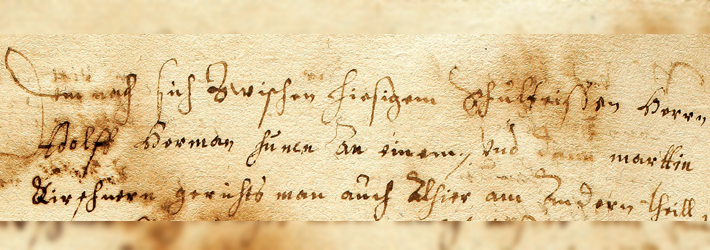 Demnach sich Zwischen hiesigem Schultheissen Herrn
Adolff Herman an einem, vnd dann marttin
Kirschnern gerichts man auch Alhier am andern theill